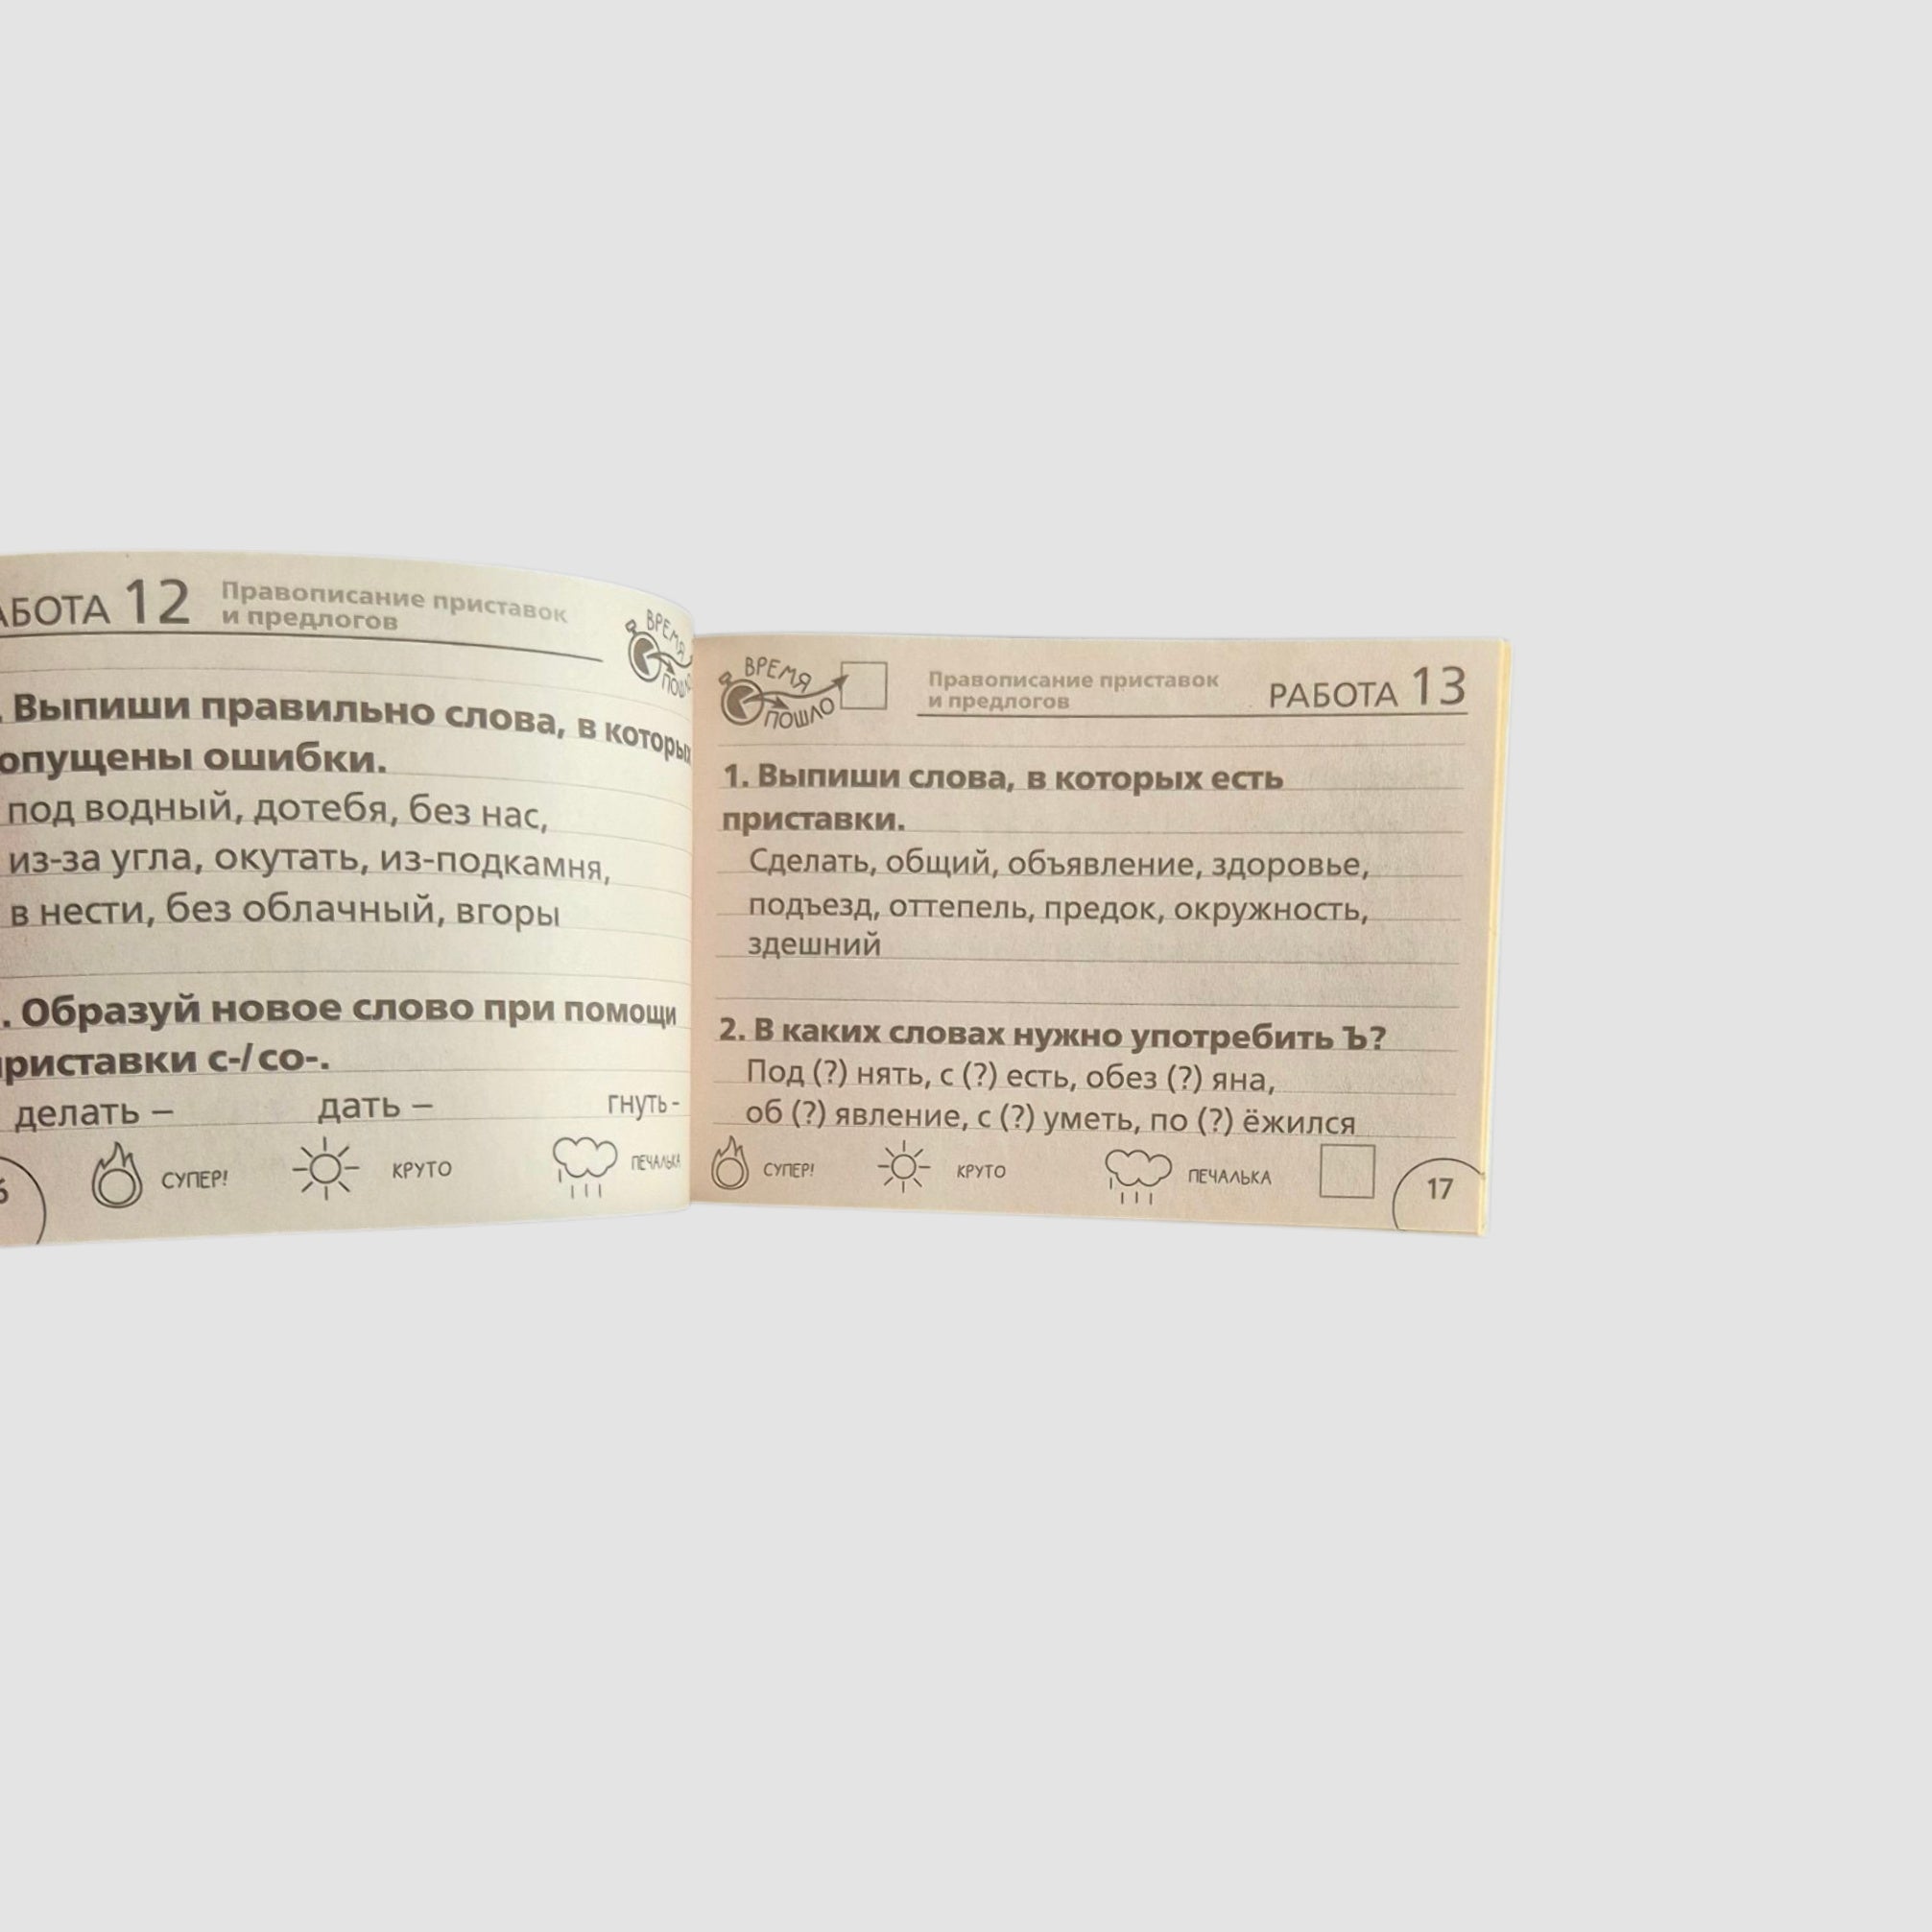 АБОТА 12
Правописание приставок
и предлогов
ВРЕМЯ
. Выпиши правильно слова, в которых
опущены ошибки.
под водный, дотебя, без нас,
из-за угла, окутать, из-подкамня,
в нести, без облачный, вгоры
. Образуй новое слово при помощи
приставки с-/со-.
делать – дать – гнуть -
СУПЕР! КРУТО ПЕЧАЛЬКА
ВРЕМЯ
ПОШЛО
Правописание приставок
и предлогов
РАБОТА 13
1. Выпиши слова, в которых есть
приставки.
Сделать, общий, объявление, здоровье,
подъезд, оттепель, предок, окружность,
здешний
2. В каких словах нужно употребить Ъ?
Под (?) нять, с (?) есть, обез (?) яна,
об (?) явление, с (?) уметь, по (?) ёжился
СУПЕР! КРУТО ПЕЧАЛЬКА
17